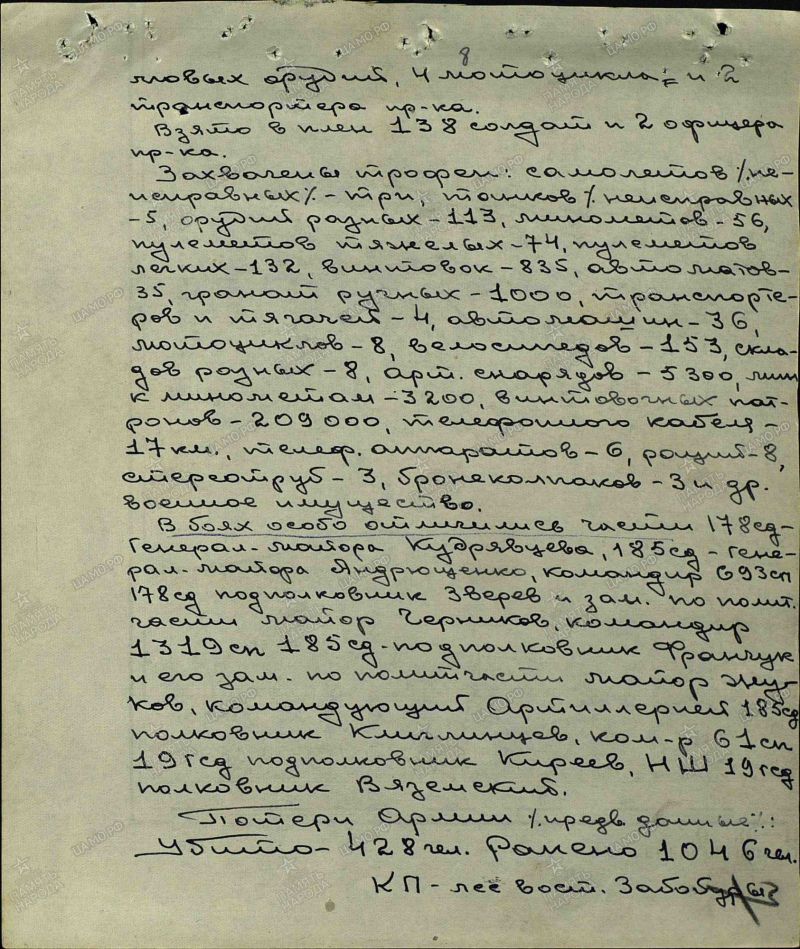 8
мовых орудий, 4 мотоцикла и 2
транспортера пр-ка.
Взято в плен 138 солдат и 2 офицера
пр-ка.
Захвачены трофеи: самолетов /.не-
исправных/.-три, танков /.неисправных
-5, орудий разных-113, минометов-56,
пулеметов тяжелых-74, пулеметов
легких-132, винтовок-835, автоматов-
35, гранат ручных-1000, транспорте-
ров и тягачей-4, автомашин-36,
мотоциклов-8, велосипедов-153, скла-
дов разных-8, арт. снарядов-5300, мин
к минометам-3200, винтовочных пат-
ронов-209000, телефонного кабеля-
17 км., телеф. аппаратов-6, раций-8,
стереотруб-3, бронеколпаков-3 и др.
военное имущество.
В боях особо отличились части 178сд-
Генерал-майора Кудрявцева, 185сд-гене-
рал-майора Андрющенко, командир 693сп
178сд подполковник Зверев и зам. по полит.
части майор Черников, командир
1319сп 185сд-подполковник Франчук
и его зам. по политчасти майор Жу-
ков, командующий Артиллерией 185сд
полковник Кинглинцев, ком-р 61сп
19гсд подполковник Киреев, НШ 19гсд
полковник Вяземский.
Потери Армии /.предв. данные/.:
Убито-428чел. Ранено 1046чел.
КП-лес вост.